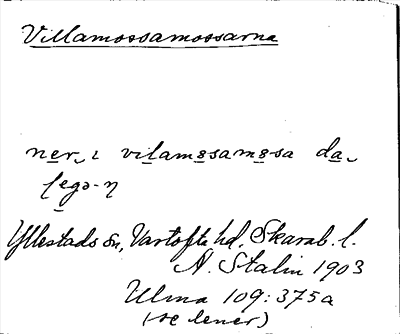 Villamossamossarna
ner ı vilamosamosa da
legə-η
Yllestads sn, Vartofta hd, Skarab. l.
A. Stalin 1903
Ulma 109:375a
(se lener)